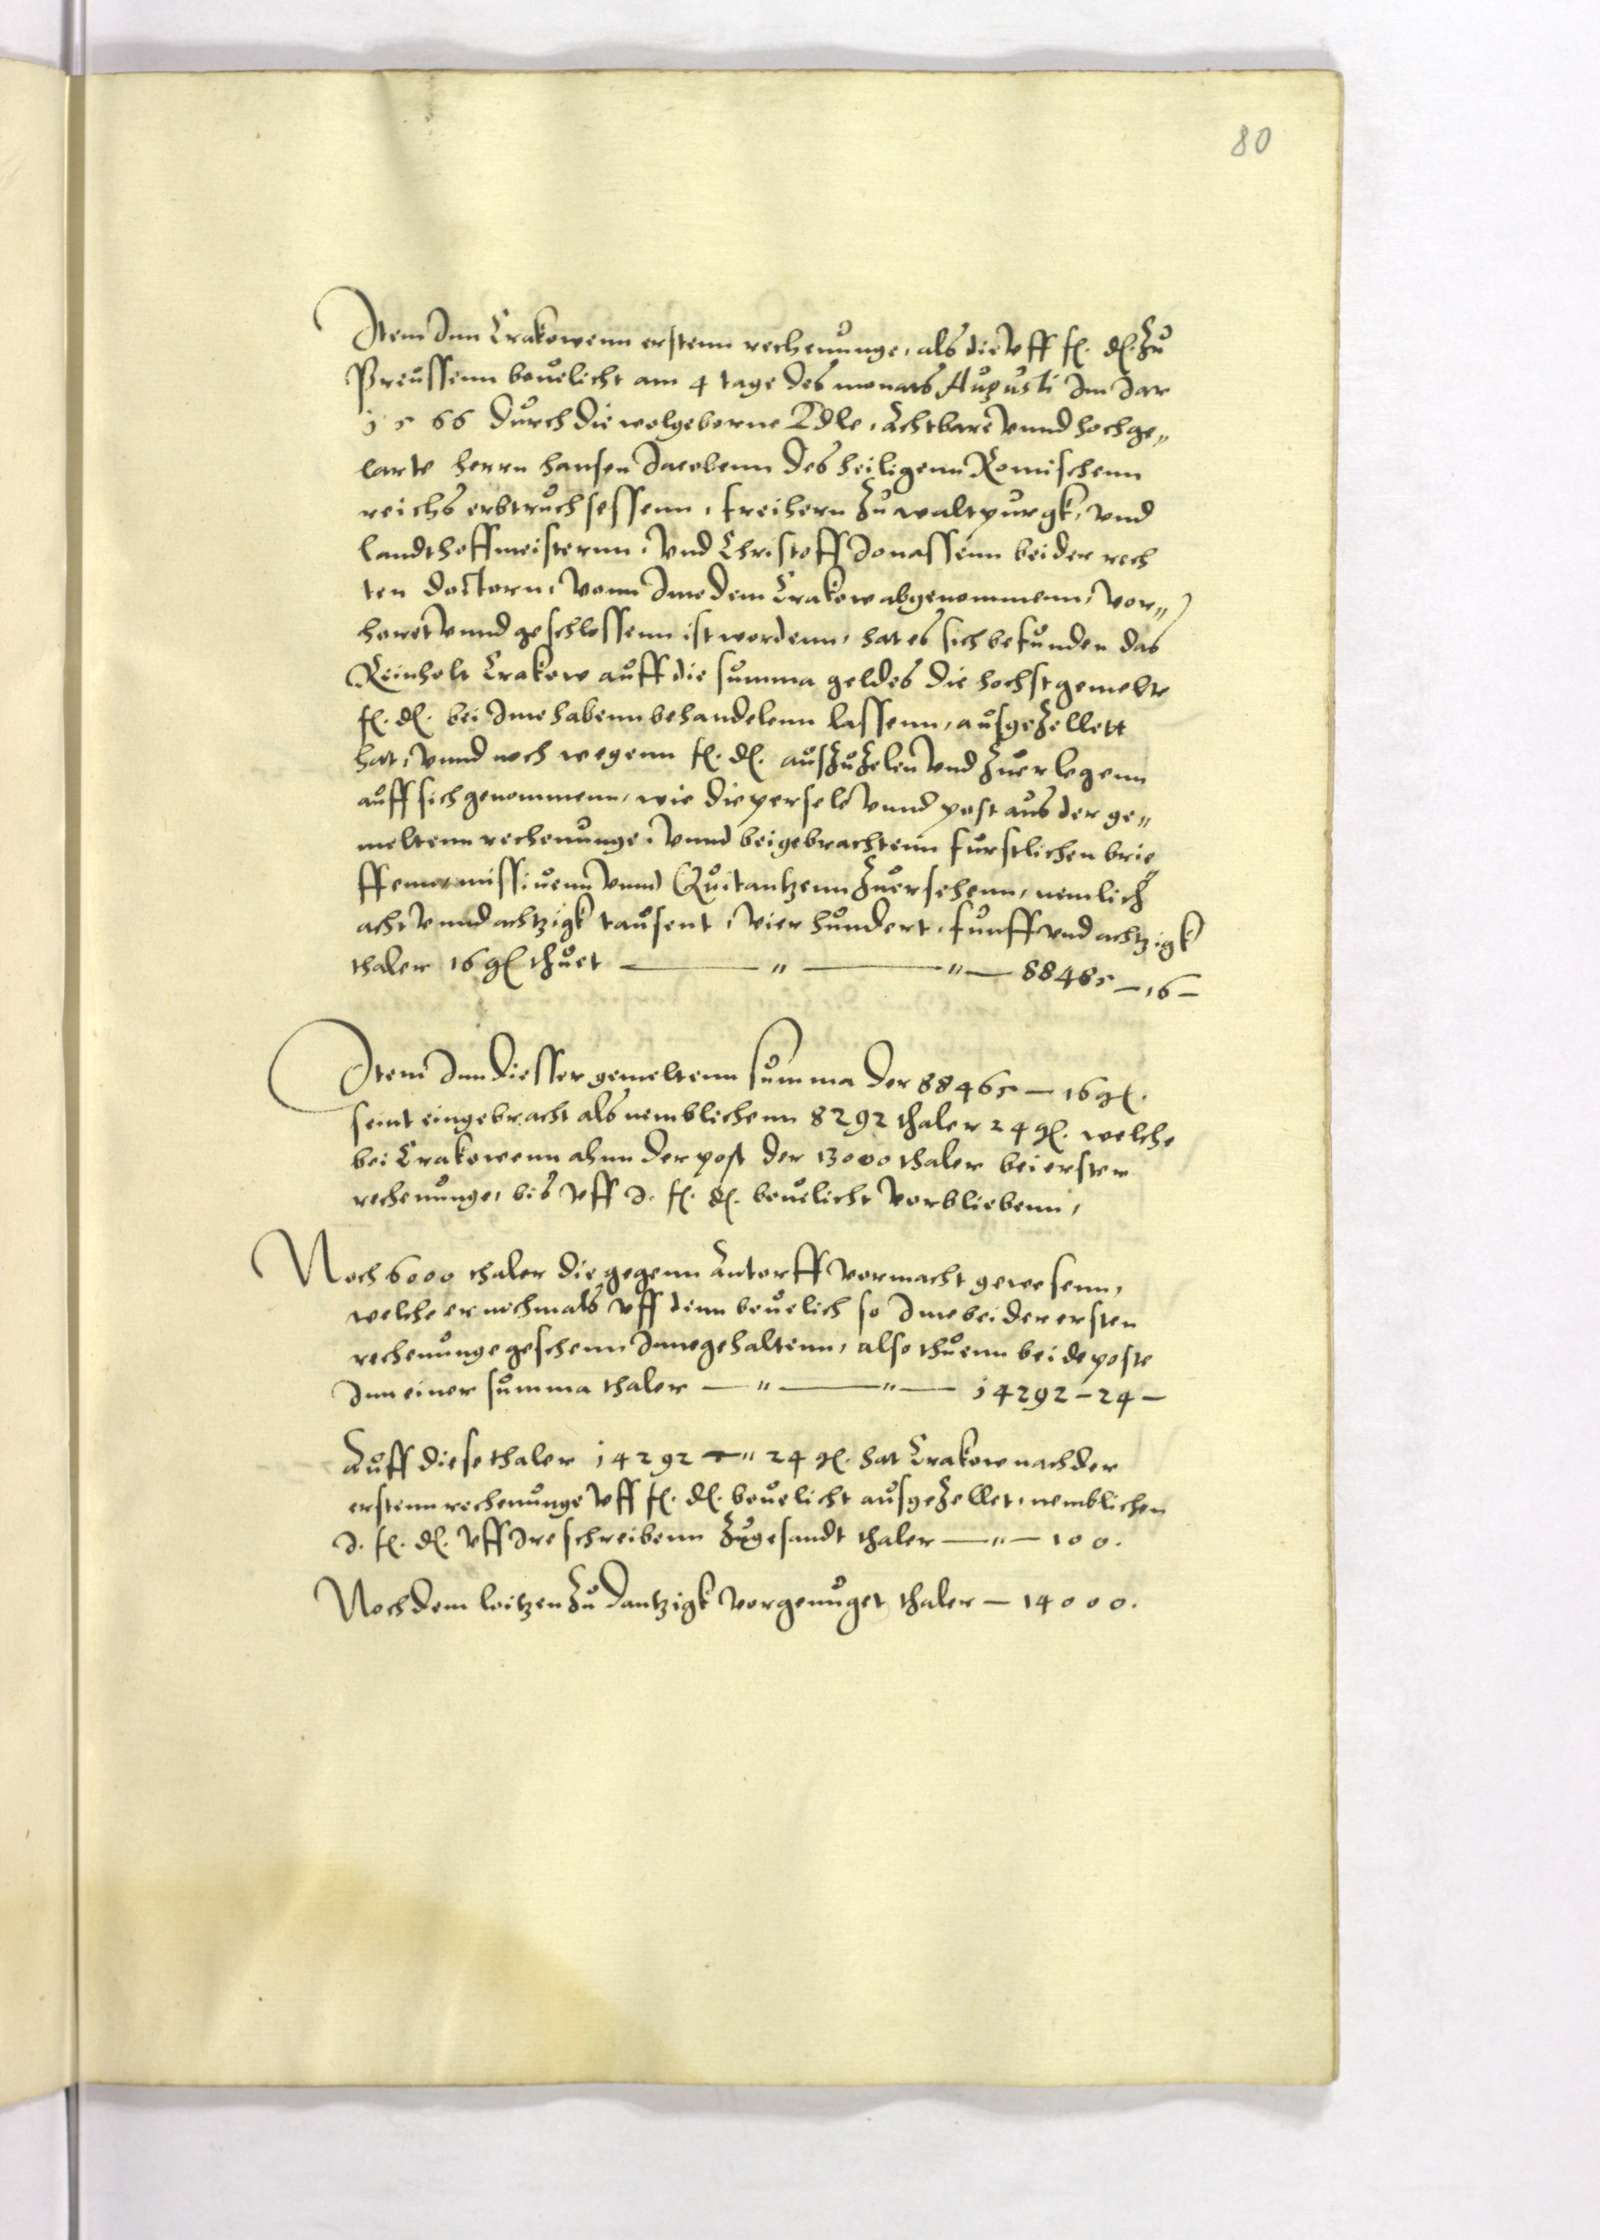 80
Item Inn Crakowenn erstenn rechenunge, als die uff f. d. zu
Preussenn bevelicht am 4 tage des monats Augusti Im Jar
1566 durch die wolgeborne Edle, Achtbare unnd hochge„
larte herrn hansen Jacobenn des heiligenn Romischenn
reichs erbtruchsessenn, freihern zu waltpurgk, und
landthoffmeisternn, und Christoff Jonassenn beider rech
ten doctorn, vonn Ime dem Crakow abgenommenn, vor„
horet unnd geschlossenn ist wordenn, hat es sich befunden das
Reinholt Crakow auff die summa geldes die hochstgemelte
f. d. bei Ime habenn behandelenn lassenn, ausgezellett
hat, unnd noch wegenn f. d. auszuzelen und zuerlegenn
auff sich genommenn, wie die persele unnd post aus der ge„
meltenn rechenunge, unnd beigebrachtenn furstlichen brie
ffenn missivenn unnd Quitantzenn zuersehenn, nemlich
acht unnd achtzigk tausent, vier hundert, funff und achtzigk
thaler 16 g thuet — „ — „ — 88485 — 16 —
Item Inn diesser gemeltenn summa der 88465 — 16 g.
seint eingebracht als nemblichenn 8292 thaler 24 g. welche
bei Crakowenn ahnn der post der 13000 thaler bei erster
rechenunge, bis uff I. f. d. bevelicht vorbliebenn,
Noch 6000 thaler die gegenn Antorff vormacht gewesenn,
welche er nochmals uff denn bevelich so Ime bei der ersten
rechenunge geschenn Innegehaltenn, also thuenn beide poste
Inn einer summa thaler — „ — „ — 14292 — 24 —
Auff diese thaler 14292 — „ 24 g. hat Crakow nach der
erstenn rechenunge uff f. d. bevelicht ausgezellet, nemblichen
I. f. d. uff Ire schreibenn zugesandt thaler — „ — 100.
Noch dem loitzen zu dantzigk vorgenuget thaler — 14000.